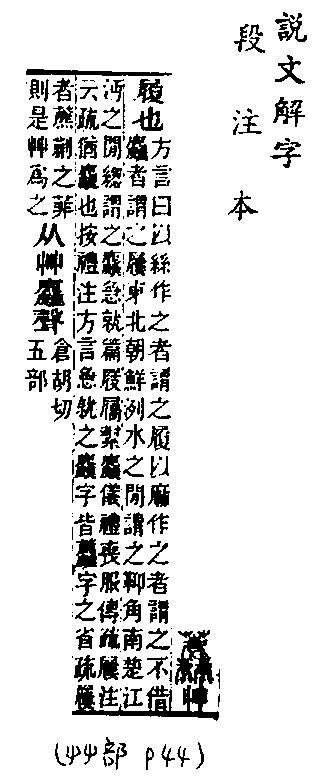 説文解字
段注本
履也
方言曰以絲作之者謂之履以麻作之者謂之不借
麤者謂之屨東北朝鮮洌水之閒謂之角南楚江
沔之閒緫謂之麤急就篇屐屩絜麤儀禮喪服傳疏屨注
云疏猶麤也按禮注方言急就之麤字皆字之省疏屨
者藨蒯之菲
則是艸爲之
从艸麤聲
倉胡切
五部
(艸部 P44)